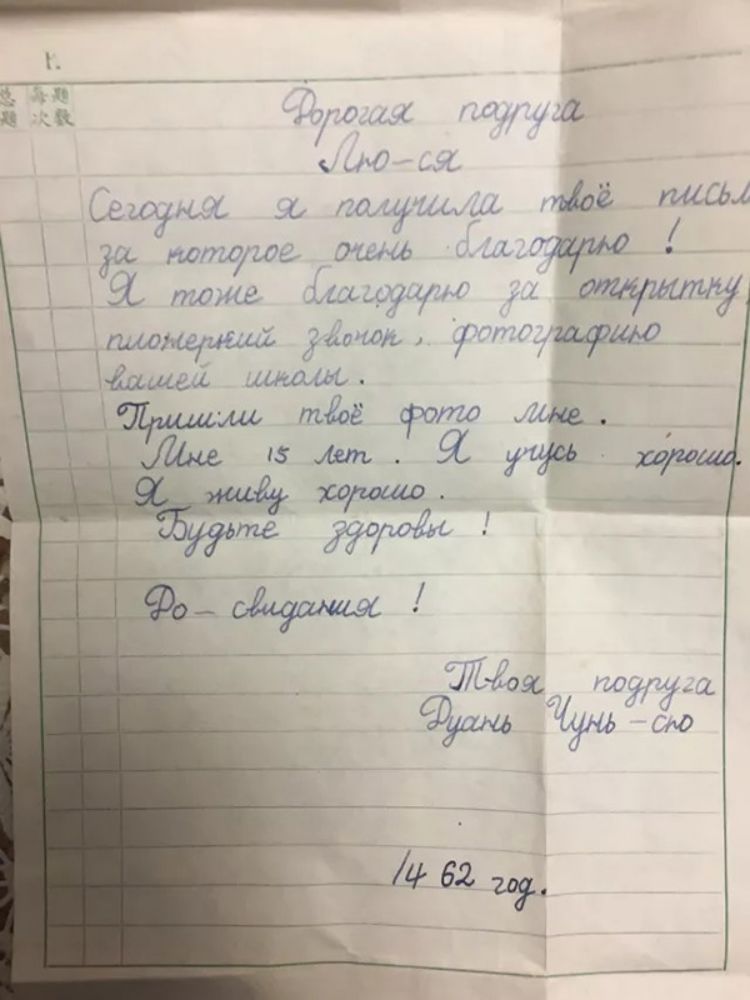 1.
总 每题
题 次数
Дорогая подруга
Лю-ся
Сегодня я получила твоё письм
за которое очень благодарю !
Я тоже благодарю за открытку
звонок, фотографию
вашей школы.
Пришли твоё фото мне.
Мне 15 лет. Я учусь хорошо.
Я живу хорошо.
Будьте здоровы !
До-свидания !
Твоя подруга
Дуань Чунь-сю
62 год.